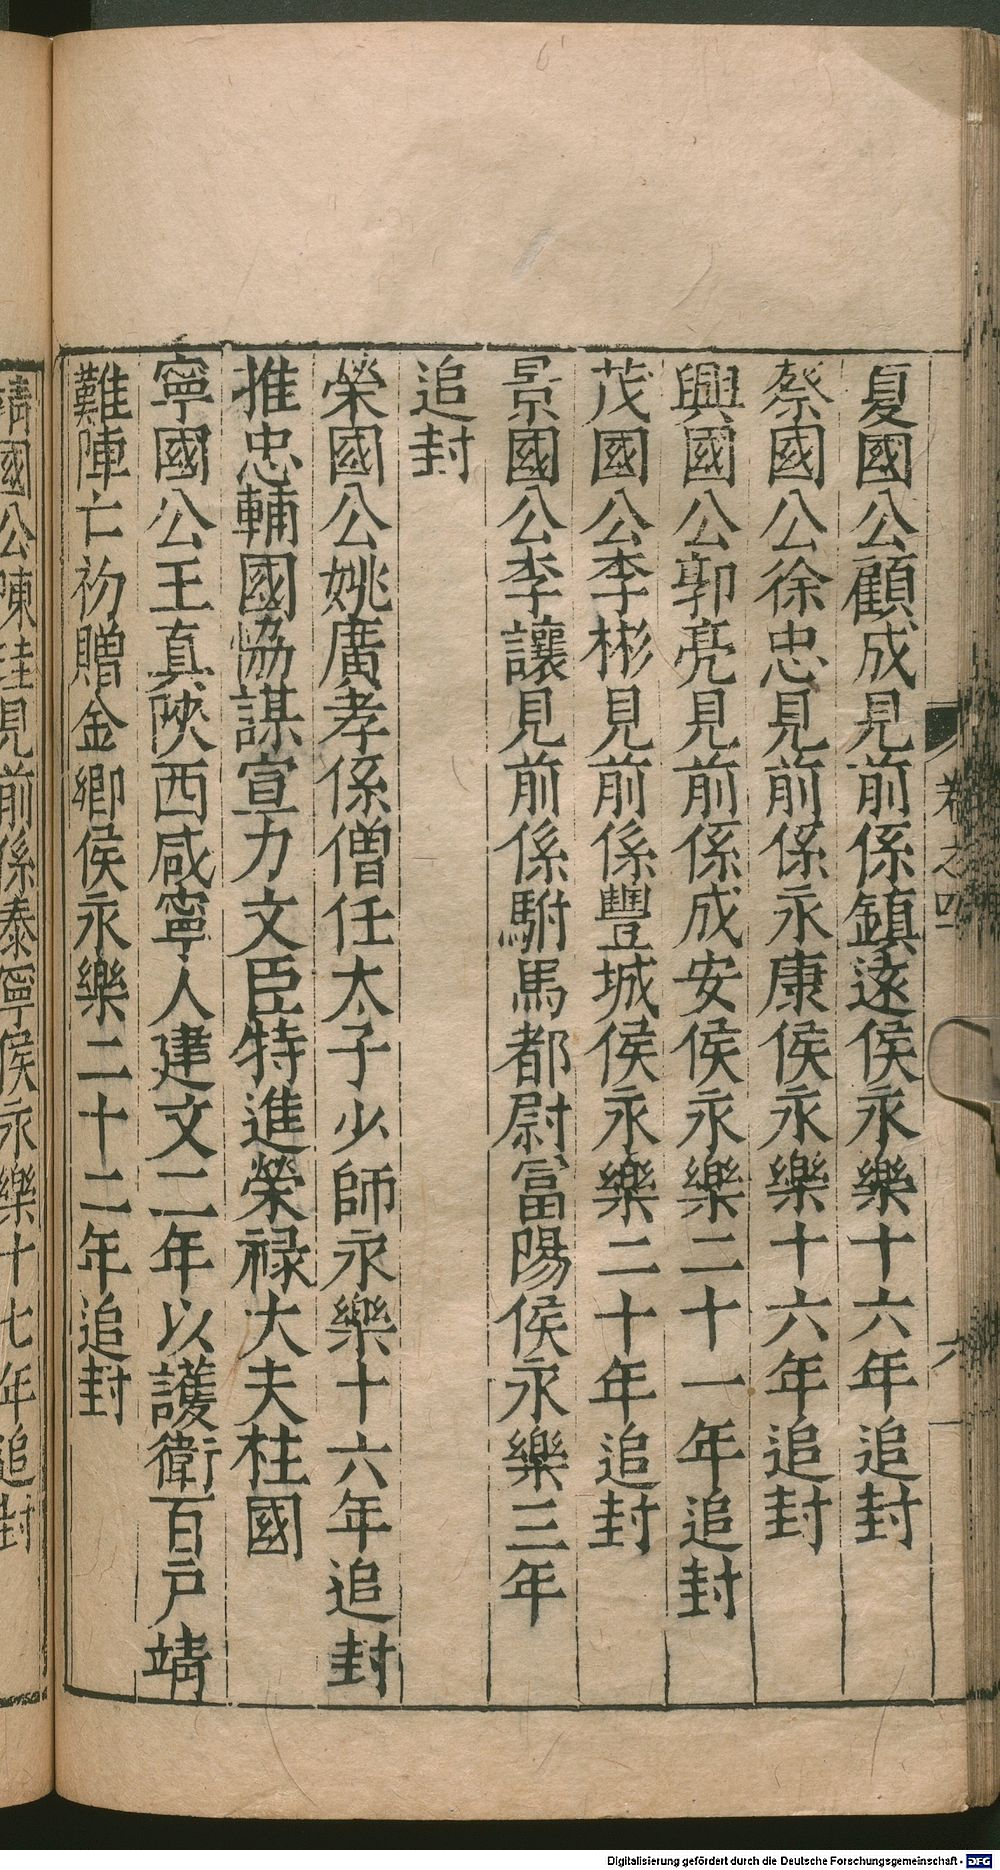 夏國公顧成見前係鎮遠侯永樂十六年追封
蔡國公徐忠見前係永康侯永樂十六年追封
興國公郭亮見前係成安侯永樂二十一年追封
茂國公李彬見前係豐城侯永樂二十年追封
景國公李讓見前係駙馬都尉富陽侯永樂三年
追封
榮國公姚廣孝係僧任太子少師永樂十六年追封
推忠輔國恊謀宣力文臣特進榮禄大夫柱國
寧國公王真陜西咸寧人建文二年以護衛百戶靖
難陣亡初贈金鄉侯永樂二十二年追封
靖國公陳珪見前係泰寧侯永樂十七年追封
卷之四
六
Digitalisierung gefördert durch die Deutsche Forschungsgemeinschaft - DFG